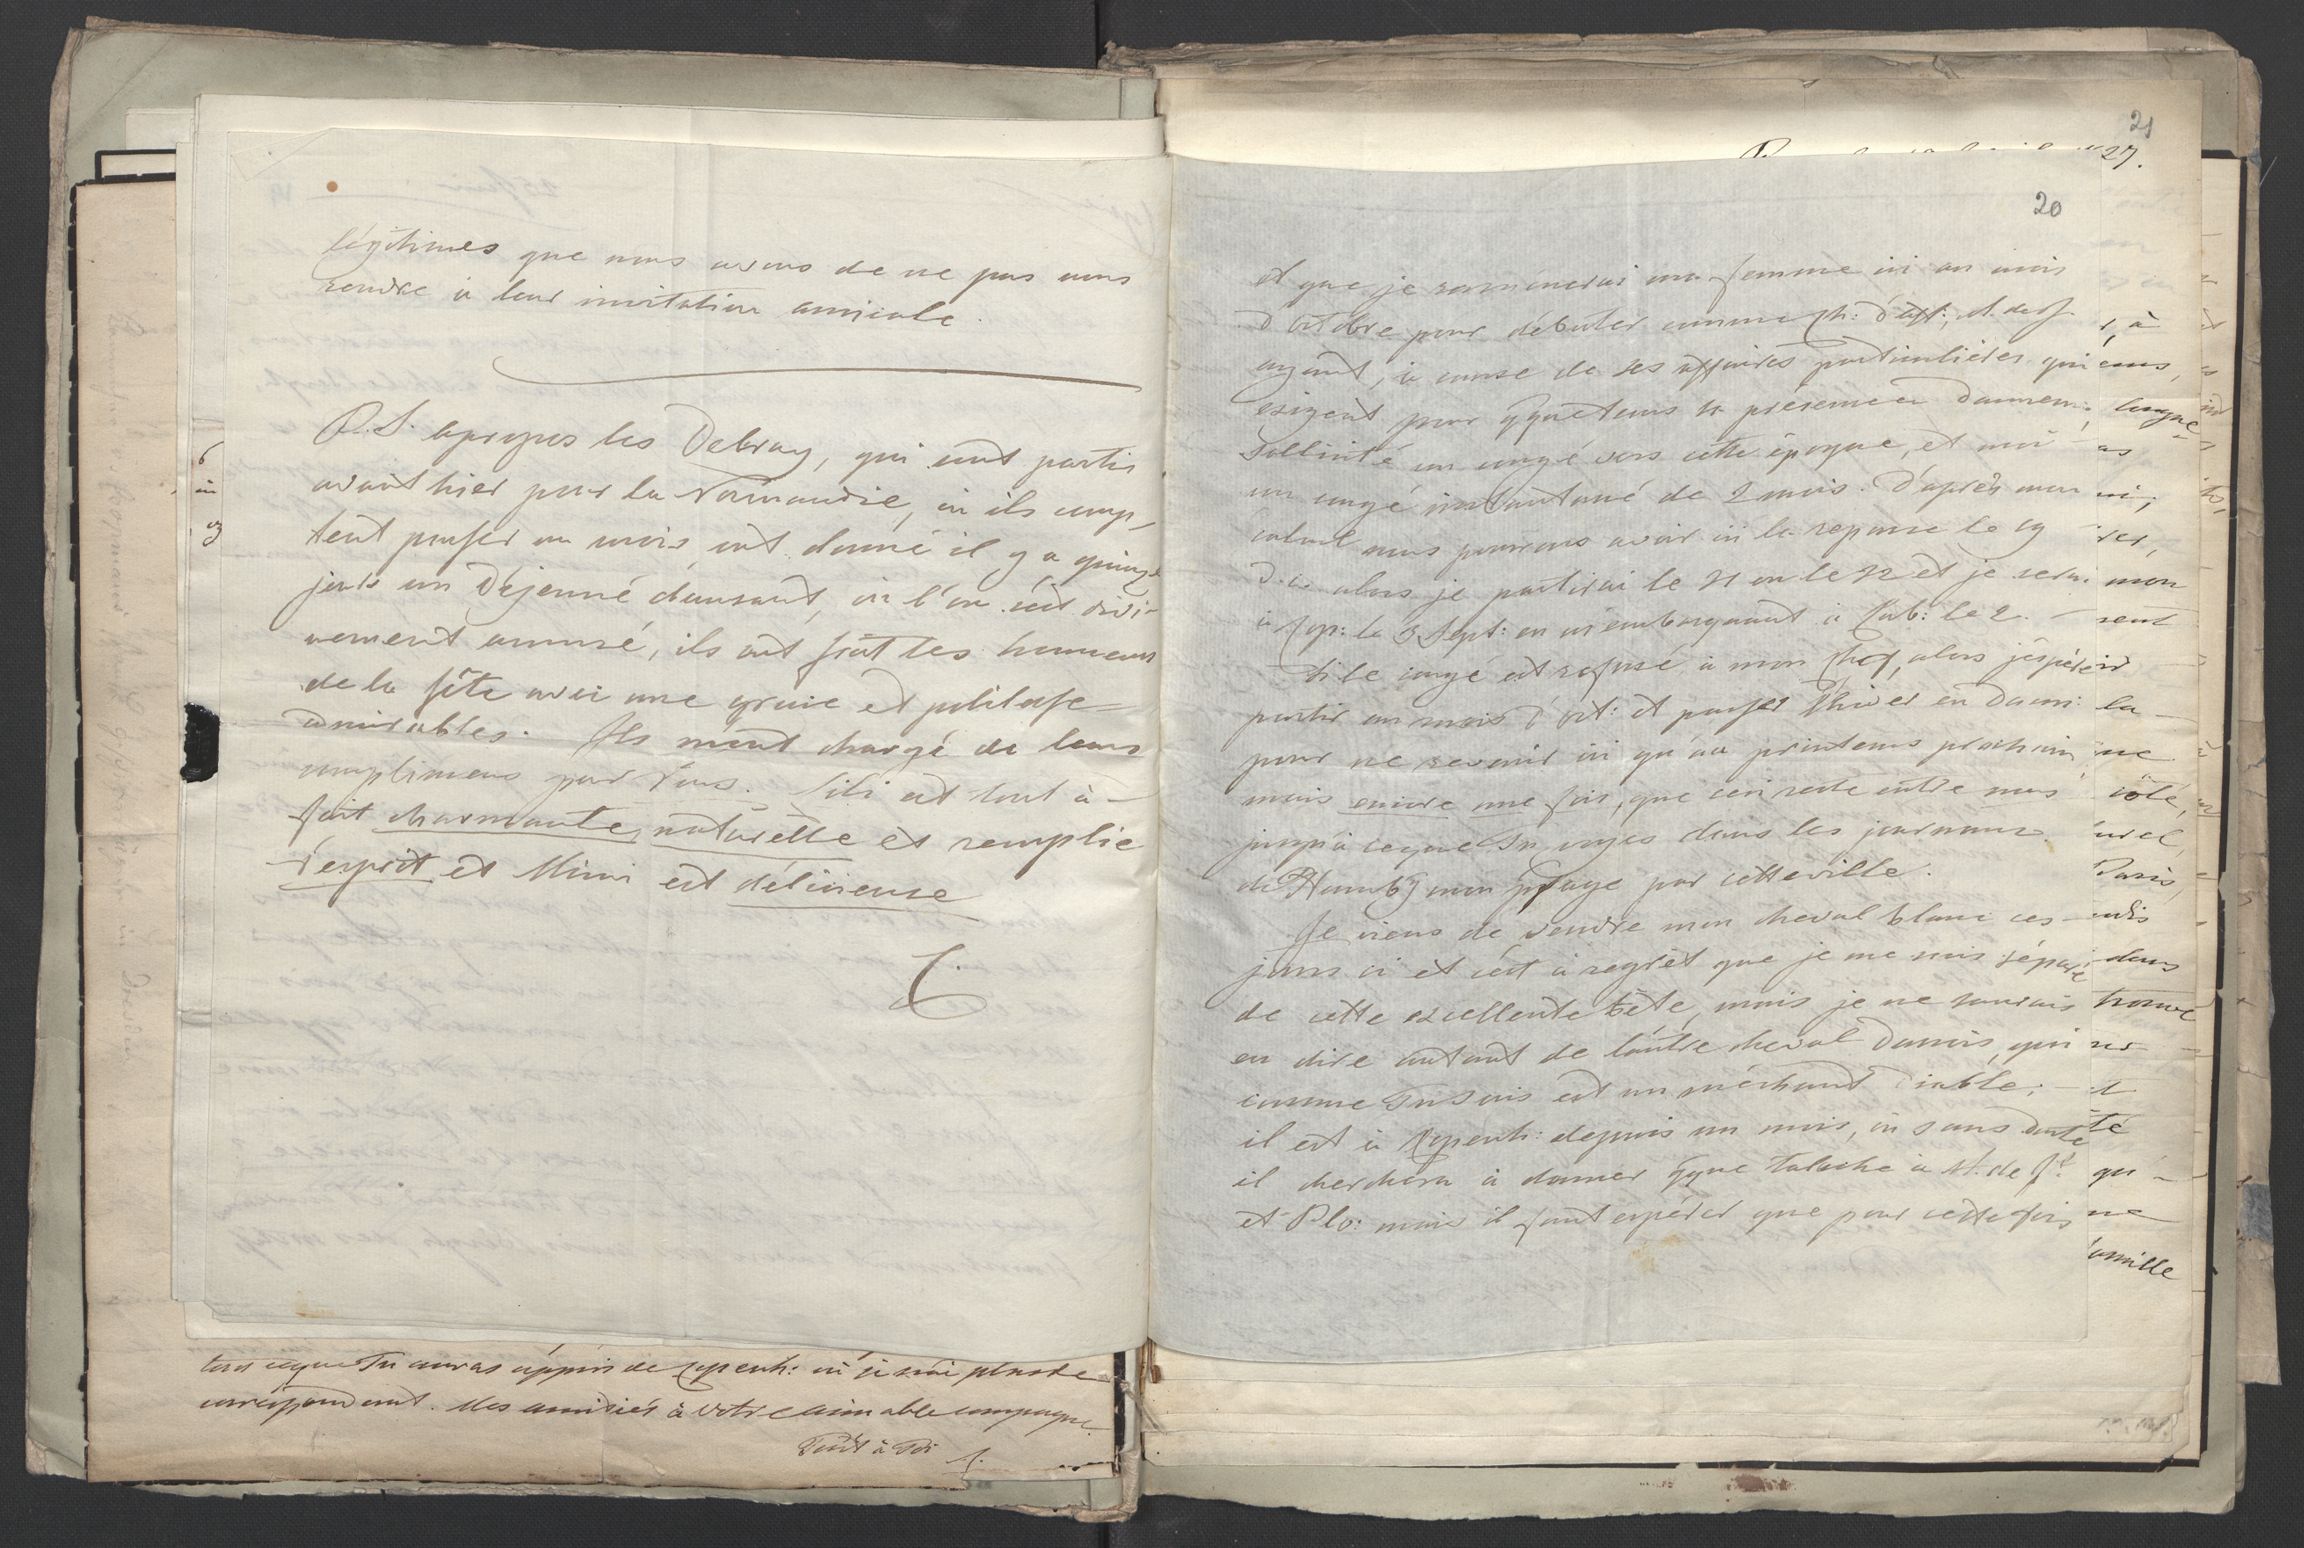 légitimes que nous avons de ne pas nous
rendre à leur invitation amicale.
P.S. apropos les Debray, qui sont partis
avant hier pour la Normandie, où ils comp-
tent passer un mois, ont donné il y a quinze
jours un déjeuné dansant, où l'on s'est divi-
nement amusé, ils ont fait les honneurs
de la fête avec une grace et politesse
admirables. Ils m'ont chargé de leurs
complimens pour Vous. Lili est tout à-
fait charmante, naturelle et remplie
d'esprit et Mimi est délicieuse
C.
tout ceque Tu auras appris de Copenh: où je n'ai plus de
correspondent. Mes amitiés à votre aimable compagne
Tout à Toi
21
27.
20
et que je ramenerai ma femme ici au mois
d'octobre pour débuter comme Ch: d'aff:, M. de J.
ayant, à cause de ses affaires particulières qui
exigent pour qque tems sa présence en Dannem:,
sollicité un congé vers cette époque, et moi
un congé instantané de 2 mois. D'après mon
calcul nous pourrons avoir ici la reponse le 19
d.c. alors je partirai le 21 ou le 22 et je serai
à Cop: le 3 Sept: en m'embarquant à Lub: le 2.
Si le congé est refusé à mon chef, alors j'espère
partir au mois d'oct: et passer l'hiver en Danm:
pour ne revenir ici qu'au printems prochain
mais encore une fois, que ceci reste entre nous
jusqu'à ceque Tu voyes dans les journaux
de Hambg mon passage par cette ville.
Je viens de vendre mon cheval blanc ces
jours ci et c'est à regrèt que je me suis séparé
de cette excellente bête, mais je ne saurais
en dire autant de l'autre cheval Danois, qui
comme Tu Sais est un méchant diable;
il est à Copenh: depuis un mois, où sans doute
il cherchera à donner qque taloche à M. de J.
et Plo: mais il faut espérer que pour cette fois
à
ems,
longue
as
ni,
rer,
mon
sent
la
ne
côté,
urel,
Paris,
dans
trouvé
té
qu'
ne
famille